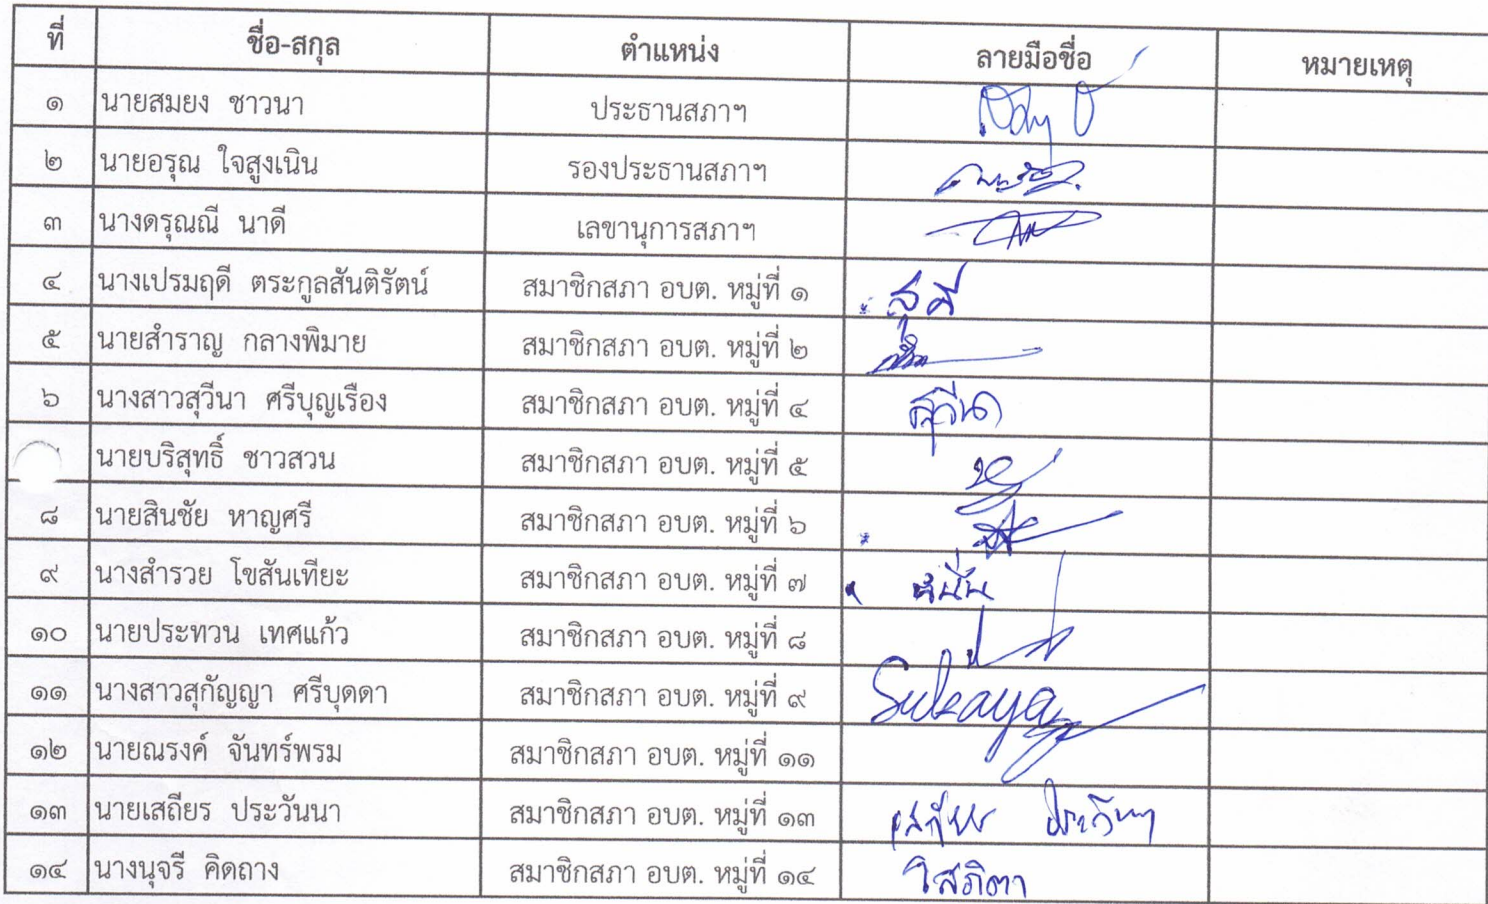 ที่ ชื่อ-สกุล ตำแหน่ง ลายมือชื่อ หมายเหตุ
๑ นายสมยง ชาวนา ประธานสภาฯ
๒ นายอรุณ ใจสูงเนิน รองประธานสภาฯ
๓ นางดรุณณี นาดี เลขานุการสภาฯ
๔ นางเปรมฤดี ตระกูลสันติรัตน์ สมาชิกสภา อบต. หมู่ที่ ๑
๕ นายสำราญ กลางพิมาย สมาชิกสภา อบต. หมู่ที่ ๒
๖ นางสาวสุวีนา ศรีบุญเรือง สมาชิกสภา อบต. หมู่ที่ ๔ สุวีนา
นายบริสุทธิ์ ชาวสวน สมาชิกสภา อบต. หมู่ที่ ๕
๘ นายสินชัย หาญศรี สมาชิกสภา อบต. หมู่ที่ ๖
๙ นางสำรวย โขสันเทียะ สมาชิกสภา อบต. หมู่ที่ ๗
๑๐ นายประทวน เทศแก้ว สมาชิกสภา อบต. หมู่ที่ ๘
๑๑ นางสาวสุกัญญา ศรีบุดดา สมาชิกสภา อบต. หมู่ที่ ๙ Sukaya
๑๒ นายณรงค์ จันทร์พรม สมาชิกสภา อบต. หมู่ที่ ๑๑
๑๓ นายเสถียร ประวันนา สมาชิกสภา อบต. หมู่ที่ ๑๓ เสถียร ประวันนา
๑๔ นางนุจรี คิดถาง สมาชิกสภา อบต. หมู่ที่ ๑๔ วิสภิตา